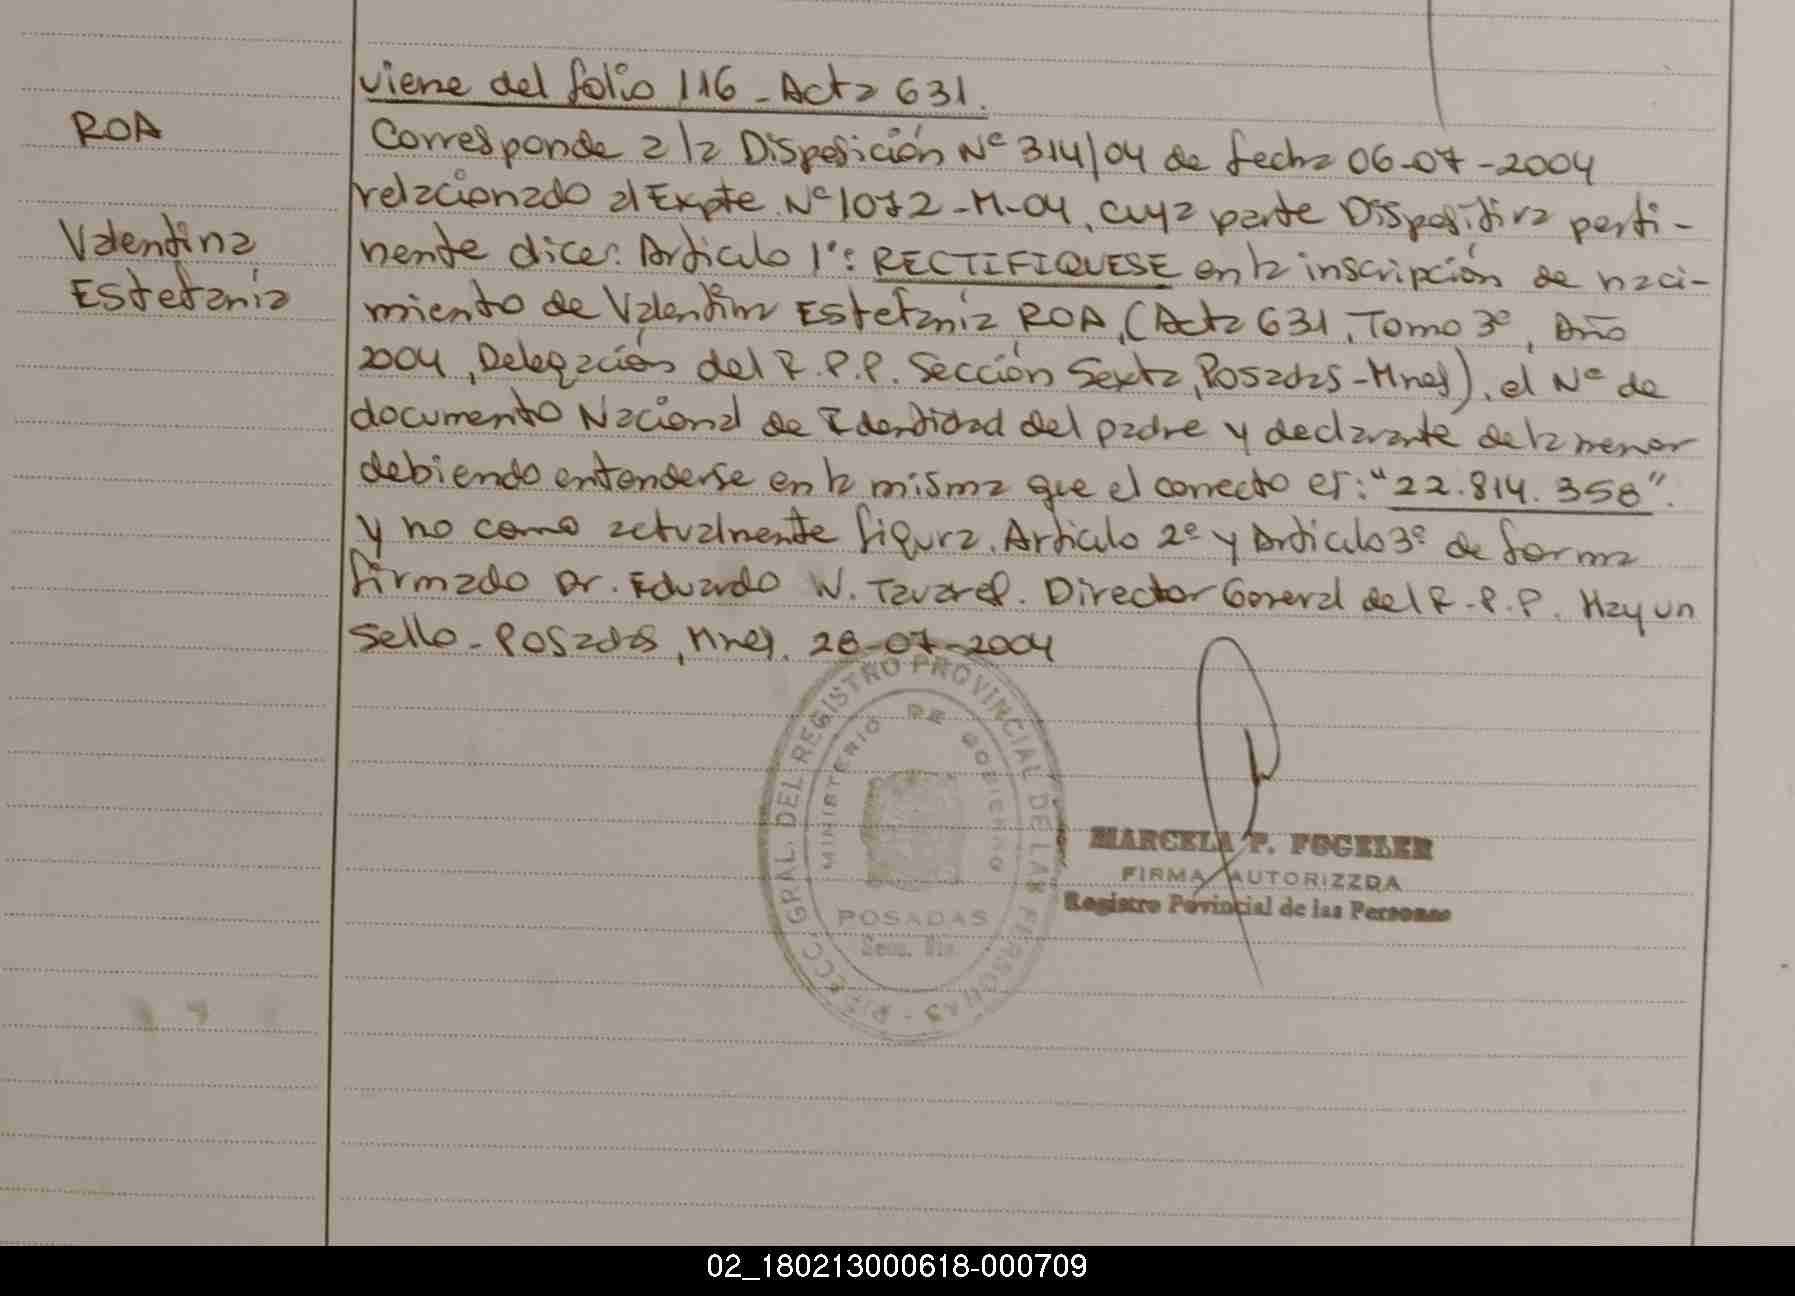 viene del folio 116 - Acta 631.
ROA
Corresponde a la Disposición Nº 314/04 de fecha 06-07-2004
relacionado al Expte. Nº 1072-M-04, cuya parte Dispositiva perti-
Valentina
nente dice: Articulo 1º: RECTIFIQUESE en la inscripción de naci-
Estefanía
miento de Valentina Estefanía ROA, (Acta 631, Tomo 3º, Año
2004, Delegación del R.P.P. Sección Sexta, Posadas-Mnes), el Nº de
documento Nacional de Identidad del padre y declarante de la menor
debiendo entenderse en la misma que el correcto es: "22.814.358".
y no como actualmente figura. Articulo 2º y Articulo 3º de forma
firmado Dr. Eduardo W. Tavares. Director General del R.P.P. Hay un
Sello - Posadas, Mnes. 28-07-2004
DIRECC. GRAL. DEL REGISTRO PROVINCIAL DE LAS PERSONAS
MINISTERIO DE GOBIERNO
POSADAS
MARCELA P. FOGELER
FIRMA AUTORIZZDA
Registro Povincial de las Personas
02_180213000618-000709